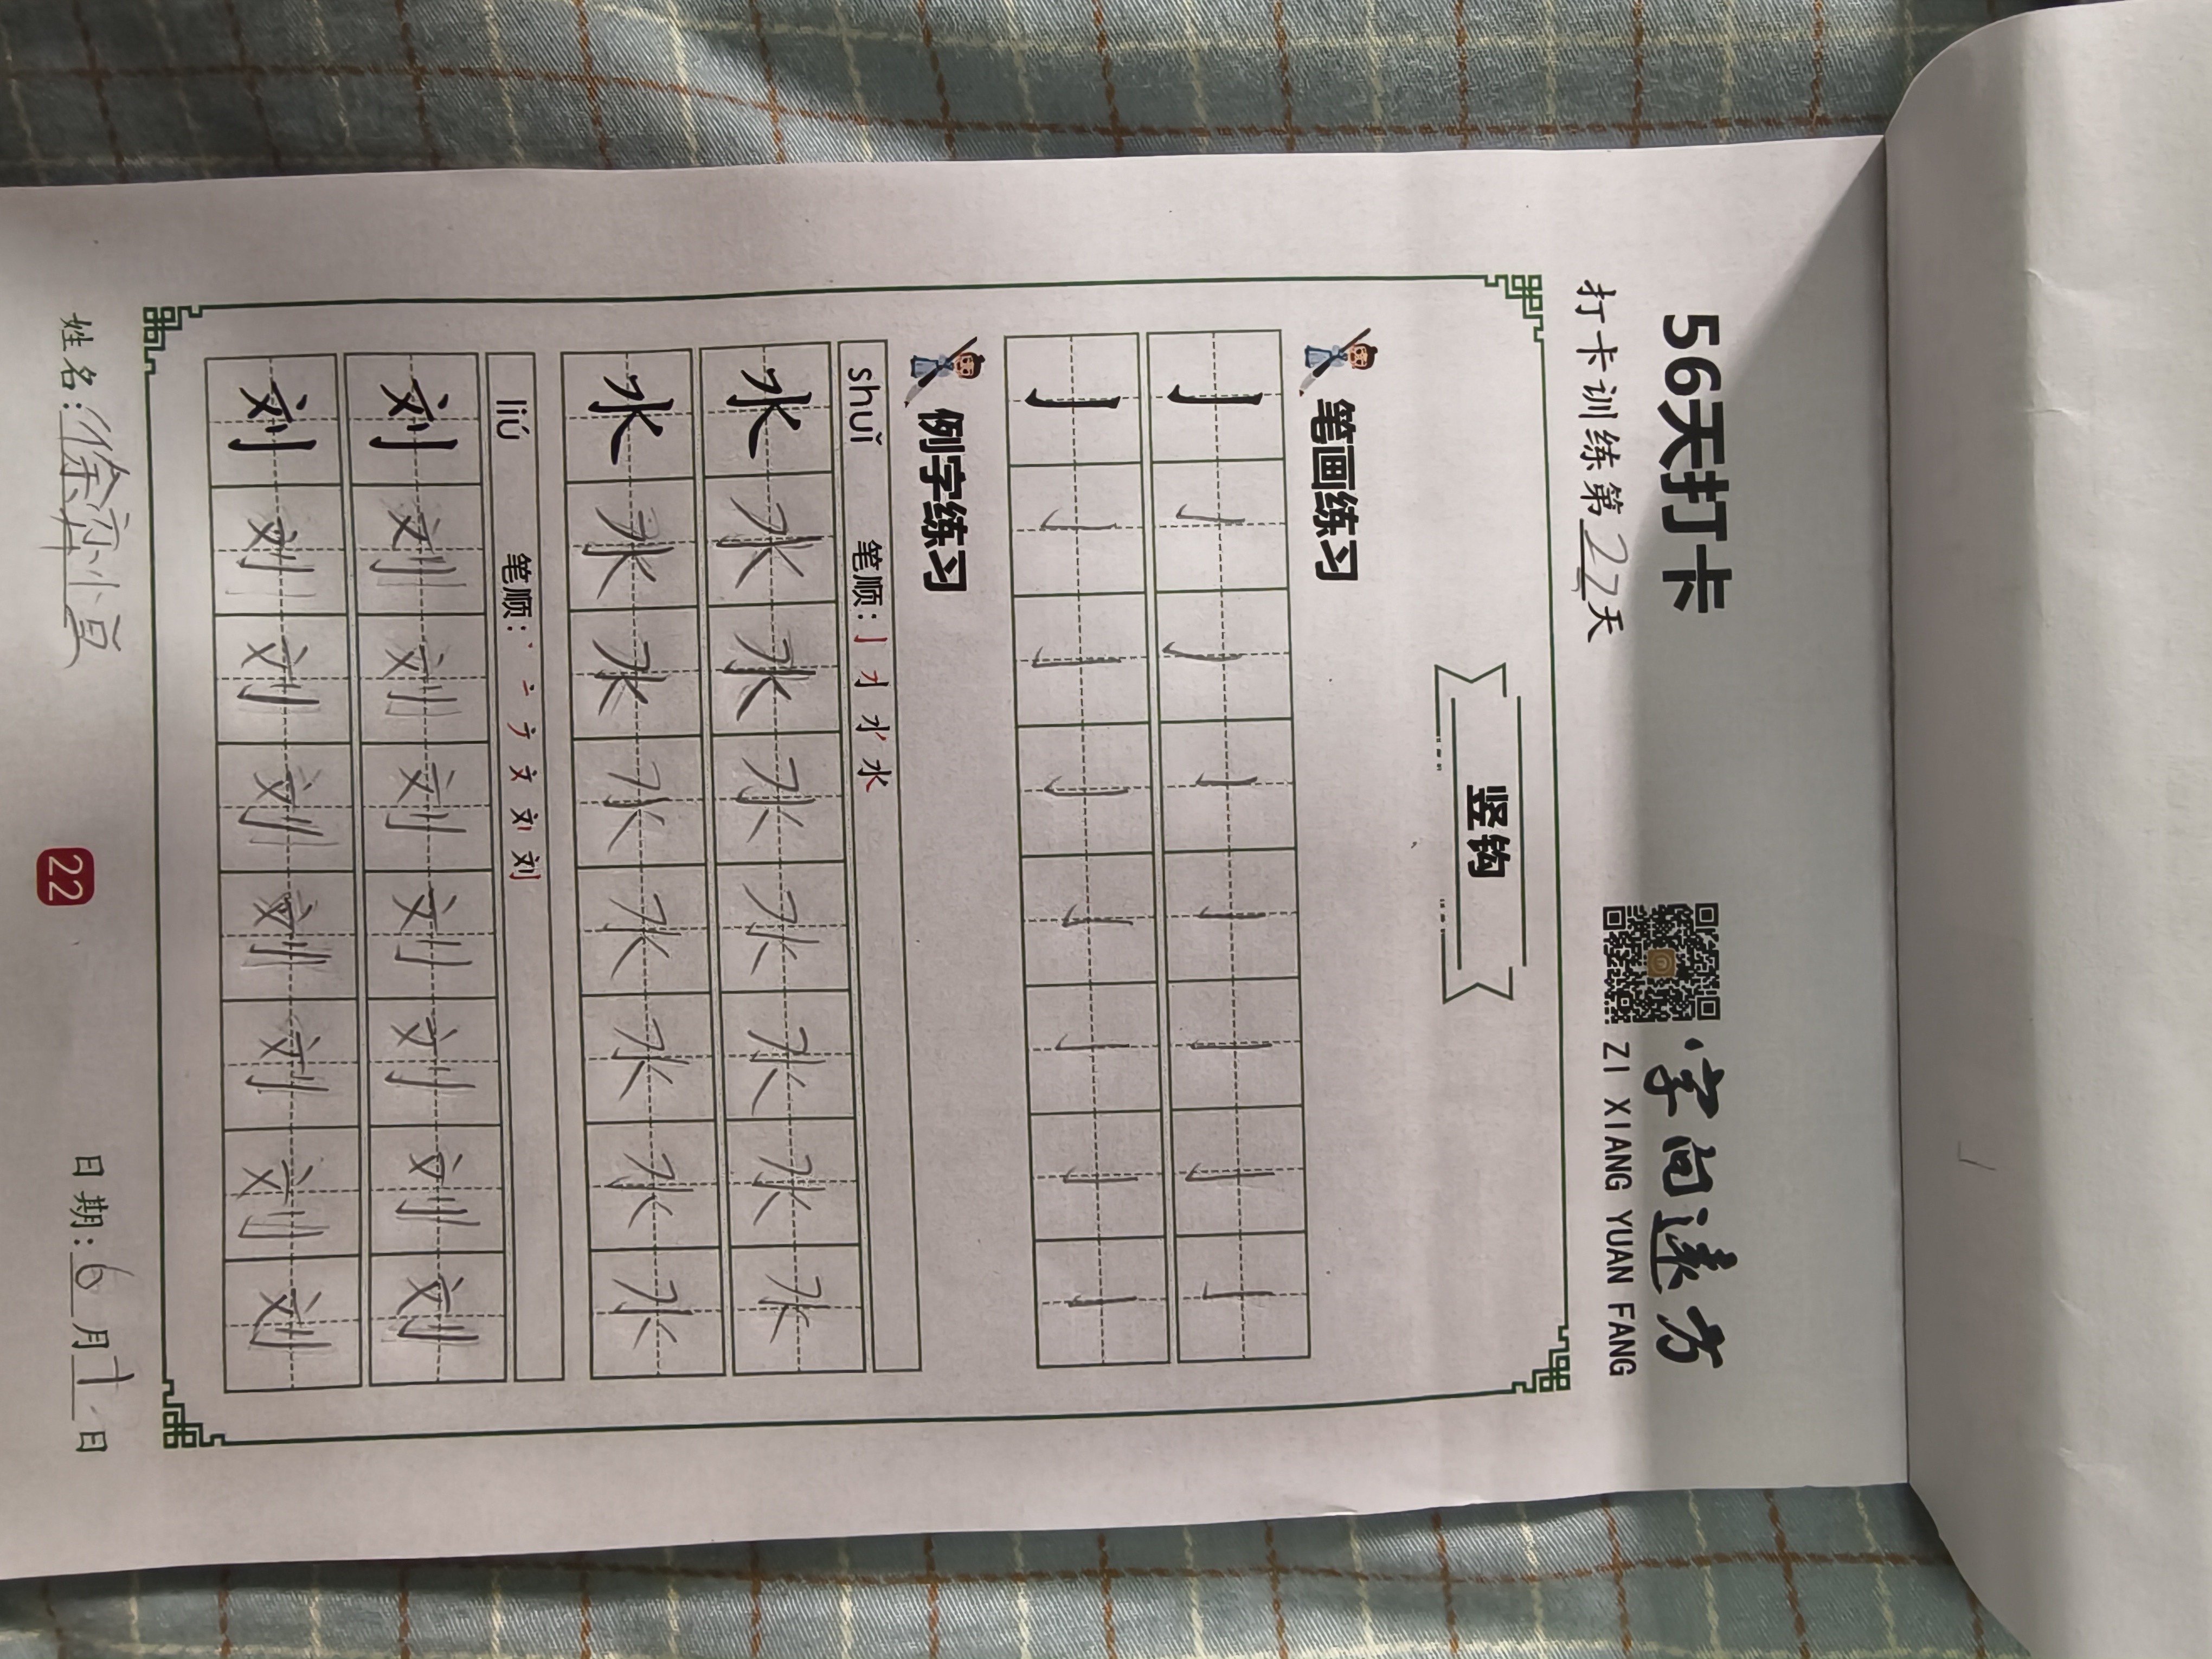 56天打卡
打卡训练第22天
字向遠方
ZI XIANG YUAN FANG
竖钩
笔画练习
亅 亅 亅 亅 亅 亅 亅 亅
亅 亅 亅 亅 亅 亅 亅 亅
例字练习
shuǐ 笔顺:
水 水 水 水 水 水 水 水
水 水 水 水 水 水 水 水
liú 笔顺:
刘 刘 刘 刘 刘 刘 刘 刘
刘 刘 刘 刘 刘 刘 刘 刘
姓名:徐
22
日期:6月1日